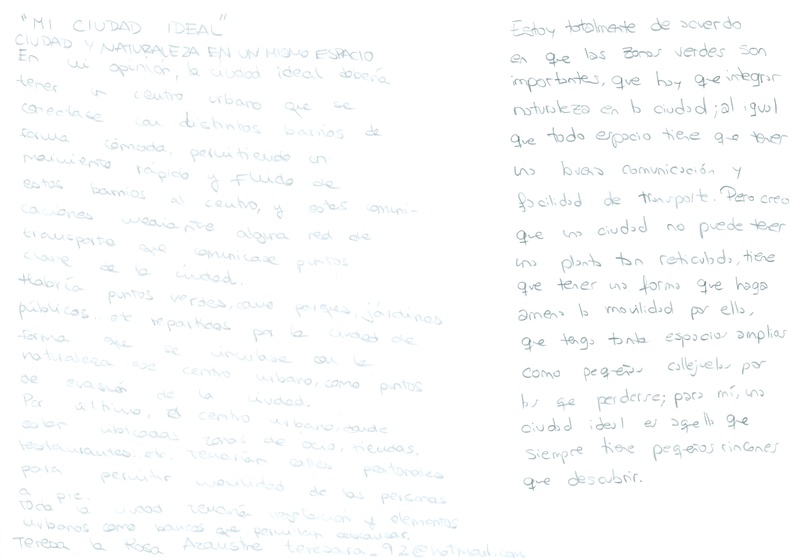 "MI CIUDAD IDEAL"
CIUDAD Y NATURALEZA EN UN MISMO ESPACIO
En mi opinión, la ciudad ideal debería
tener un centro urbano que se
conectase con distintos barrios de
forma cómoda, permitiendo un
movimiento rápido y fluido de
estos barrios al centro, y estas comuni-
caciones mediante alguna red de
transporte que comunicase puntos
clave de la ciudad.
Habría puntos verdes, como parques, jardines
públicos.. etc repartidos por la ciudad de
forma que se vinculase con la
naturaleza ese centro urbano, como puntos
de evasión de la ciudad.
Por último, el centro urbano, donde
están ubicadas zonas de ocio, tiendas,
restaurantes.. etc. tendrían calles peatonales
para permitir movilidad de las personas
a pie.
Toda la ciudad tendría vegetación y elementos
urbanos como bancos que permitan descansar.
Teresa la Rosa Azaustre teresara_92@hotmail.com
Estoy totalmente de acuerdo
en que las zonas verdes son
importantes, que hay que integrar
naturaleza en la ciudad; al igual
que todo espacio tiene que tener
una buena comunicación y
facilidad de transporte. Pero creo
que una ciudad no puede tener
una planta tan reticulada, tiene
que tener una forma que haga
amena la movilidad por ella,
que tenga tanto espacios amplios
como pequeñas callejuelas por
las que perderse; para mí, una
ciudad ideal es aquella que
siempre tiene pequeños rincones
que descubrir.